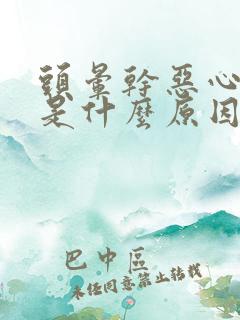 頭暈幹惡心
是什麼原因
巴中區
未经同意禁止转载